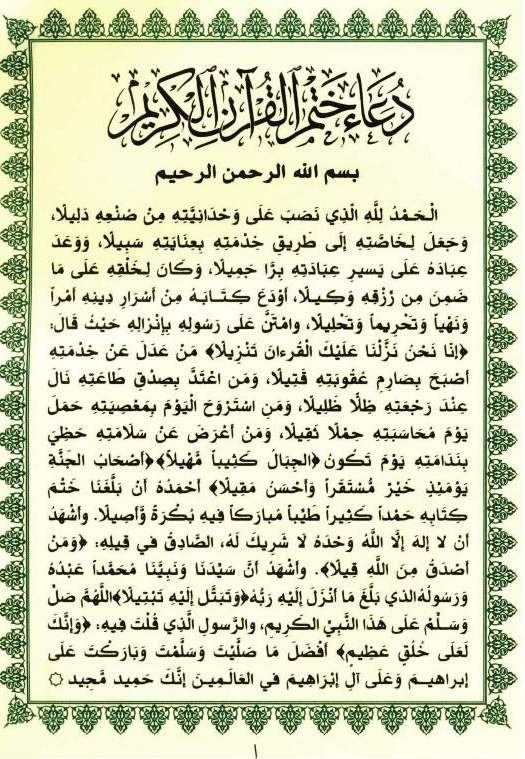 دُعَاءُ خَتْمِ ٱلْقُرْآنِ ٱلْكَرِيمِ
بسم الله الرحمن الرحيم
الْحَمْدُ لِلَّهِ الَّذِي نَصَبَ عَلَى وَحْدَانِيَّتِهِ مِنْ صُنْعِهِ دَلِيلًا،
وَجَعَلَ لِخَاصَّتِهِ إِلَى طَرِيقِ خِدْمَتِهِ بِعِنَايَتِهِ سَبِيلًا، وَوَعَدَ
عِبَادَهُ عَلَى يَسِيرِ عِبَادَتِهِ بِرًّا جَمِيلًا، وَكَانَ لِخَلْقِهِ عَلَى مَا
ضَمِنَ مِن رِزْقِهِ وَكِيلًا، أَوْدَعَ كِتَابَهُ مِنْ أَسْرَارِ دِينِهِ أَمْراً
وَنَهْياً وَتَحْرِيماً وَتَحْلِيلًا، وامْتَنَّ عَلَى رَسُولِهِ بِإِنْزَالِهِ حَيْثُ قَالَ:
﴿إِنَّا نَحْنُ نَزَّلْنَا عَلَيْكَ الْقُرءانَ تَنْزِيلًا﴾ مَنْ عَدَلَ عَنْ خِدْمَتِهِ
أَصْبَحَ بِصَارِمِ عُقُوبَتِهِ قَتِيلًا، وَمَن اعْتَدَّ بِصِدْقِ طَاعَتِهِ نَالَ
عِنْدَ رَجْعَتِهِ ظِلًّا ظَلِيلًا، وَمَنِ اسْتَرْوَحَ الْيَوْمَ بِمَعْصِيَتِهِ حَمَلَ
يَوْمَ مُحَاسَبَتِهِ حِمْلًا ثَقِيلًا، وَمَنْ أَعْرَضَ عَنْ سَلَامَتِهِ حَظِيَ
بِنَدَامَتِهِ يَوْمَ تَكُونُ ﴿الجِبَالُ كَثِيباً مَّهِيلاً﴾ ﴿أَصْحَابُ الجَنَّةِ
يَوْمَئِذٍ خَيْرٌ مُّسْتَقَرّاً وَأَحْسَنُ مَقِيلًا﴾ أَحْمَدُهُ أَنْ بَلَّغَنَا خَتْمَ
كِتَابِهِ حَمْداً كَثِيراً طَيِّباً مُبَارَكاً فِيهِ بُكْرَةً وَّأَصِيلًا. وأَشْهَدُ
أَنْ لا إِلهَ إِلَّا اللَّهُ وَحْدَهُ لَا شَرِيكَ لَهُ، الصَّادِقُ في قِيلِهِ: ﴿وَمَنْ
أَصْدَقُ مِنَ اللَّهِ قِيلًا﴾. وأَشْهَدُ أَنَّ سَيِّدَنَا وَنَبِيَّنَا مُحَمَّداً عَبْدُهُ
وَرَسُولُهُ الذي بَلَّغَ مَا أَنْزَلَ إِلَيْهِ رَبُّهُ ﴿وَتَبَتَّل إِلَيْهِ تَبْتِيلًا﴾ اللَّهُمَّ صَلِّ
وَسَلِّمْ عَلَى هَذَا النَّبِيِّ الكَرِيمِ، والرَّسولِ الَّذِي قُلْتَ فِيهِ: ﴿وَإِنَّكَ
لَعَلَى خُلُقٍ عَظِيمٍ﴾ أَفْضَلَ مَا صَلَّيْتَ وَسَلَّمْتَ وَبَارَكْتَ عَلَى
إبراهيمَ وَعَلَى آلِ إبْرَاهِيمَ في العَالَمِينَ إِنَّكَ حَمِيد مَّجِيد
١